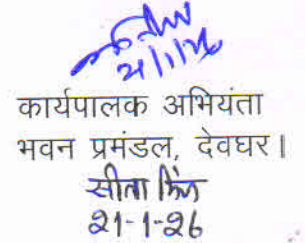 21/1/26
कार्यपालक अभियंता
भवन प्रमंडल, देवघर।
सीता
21-1-26